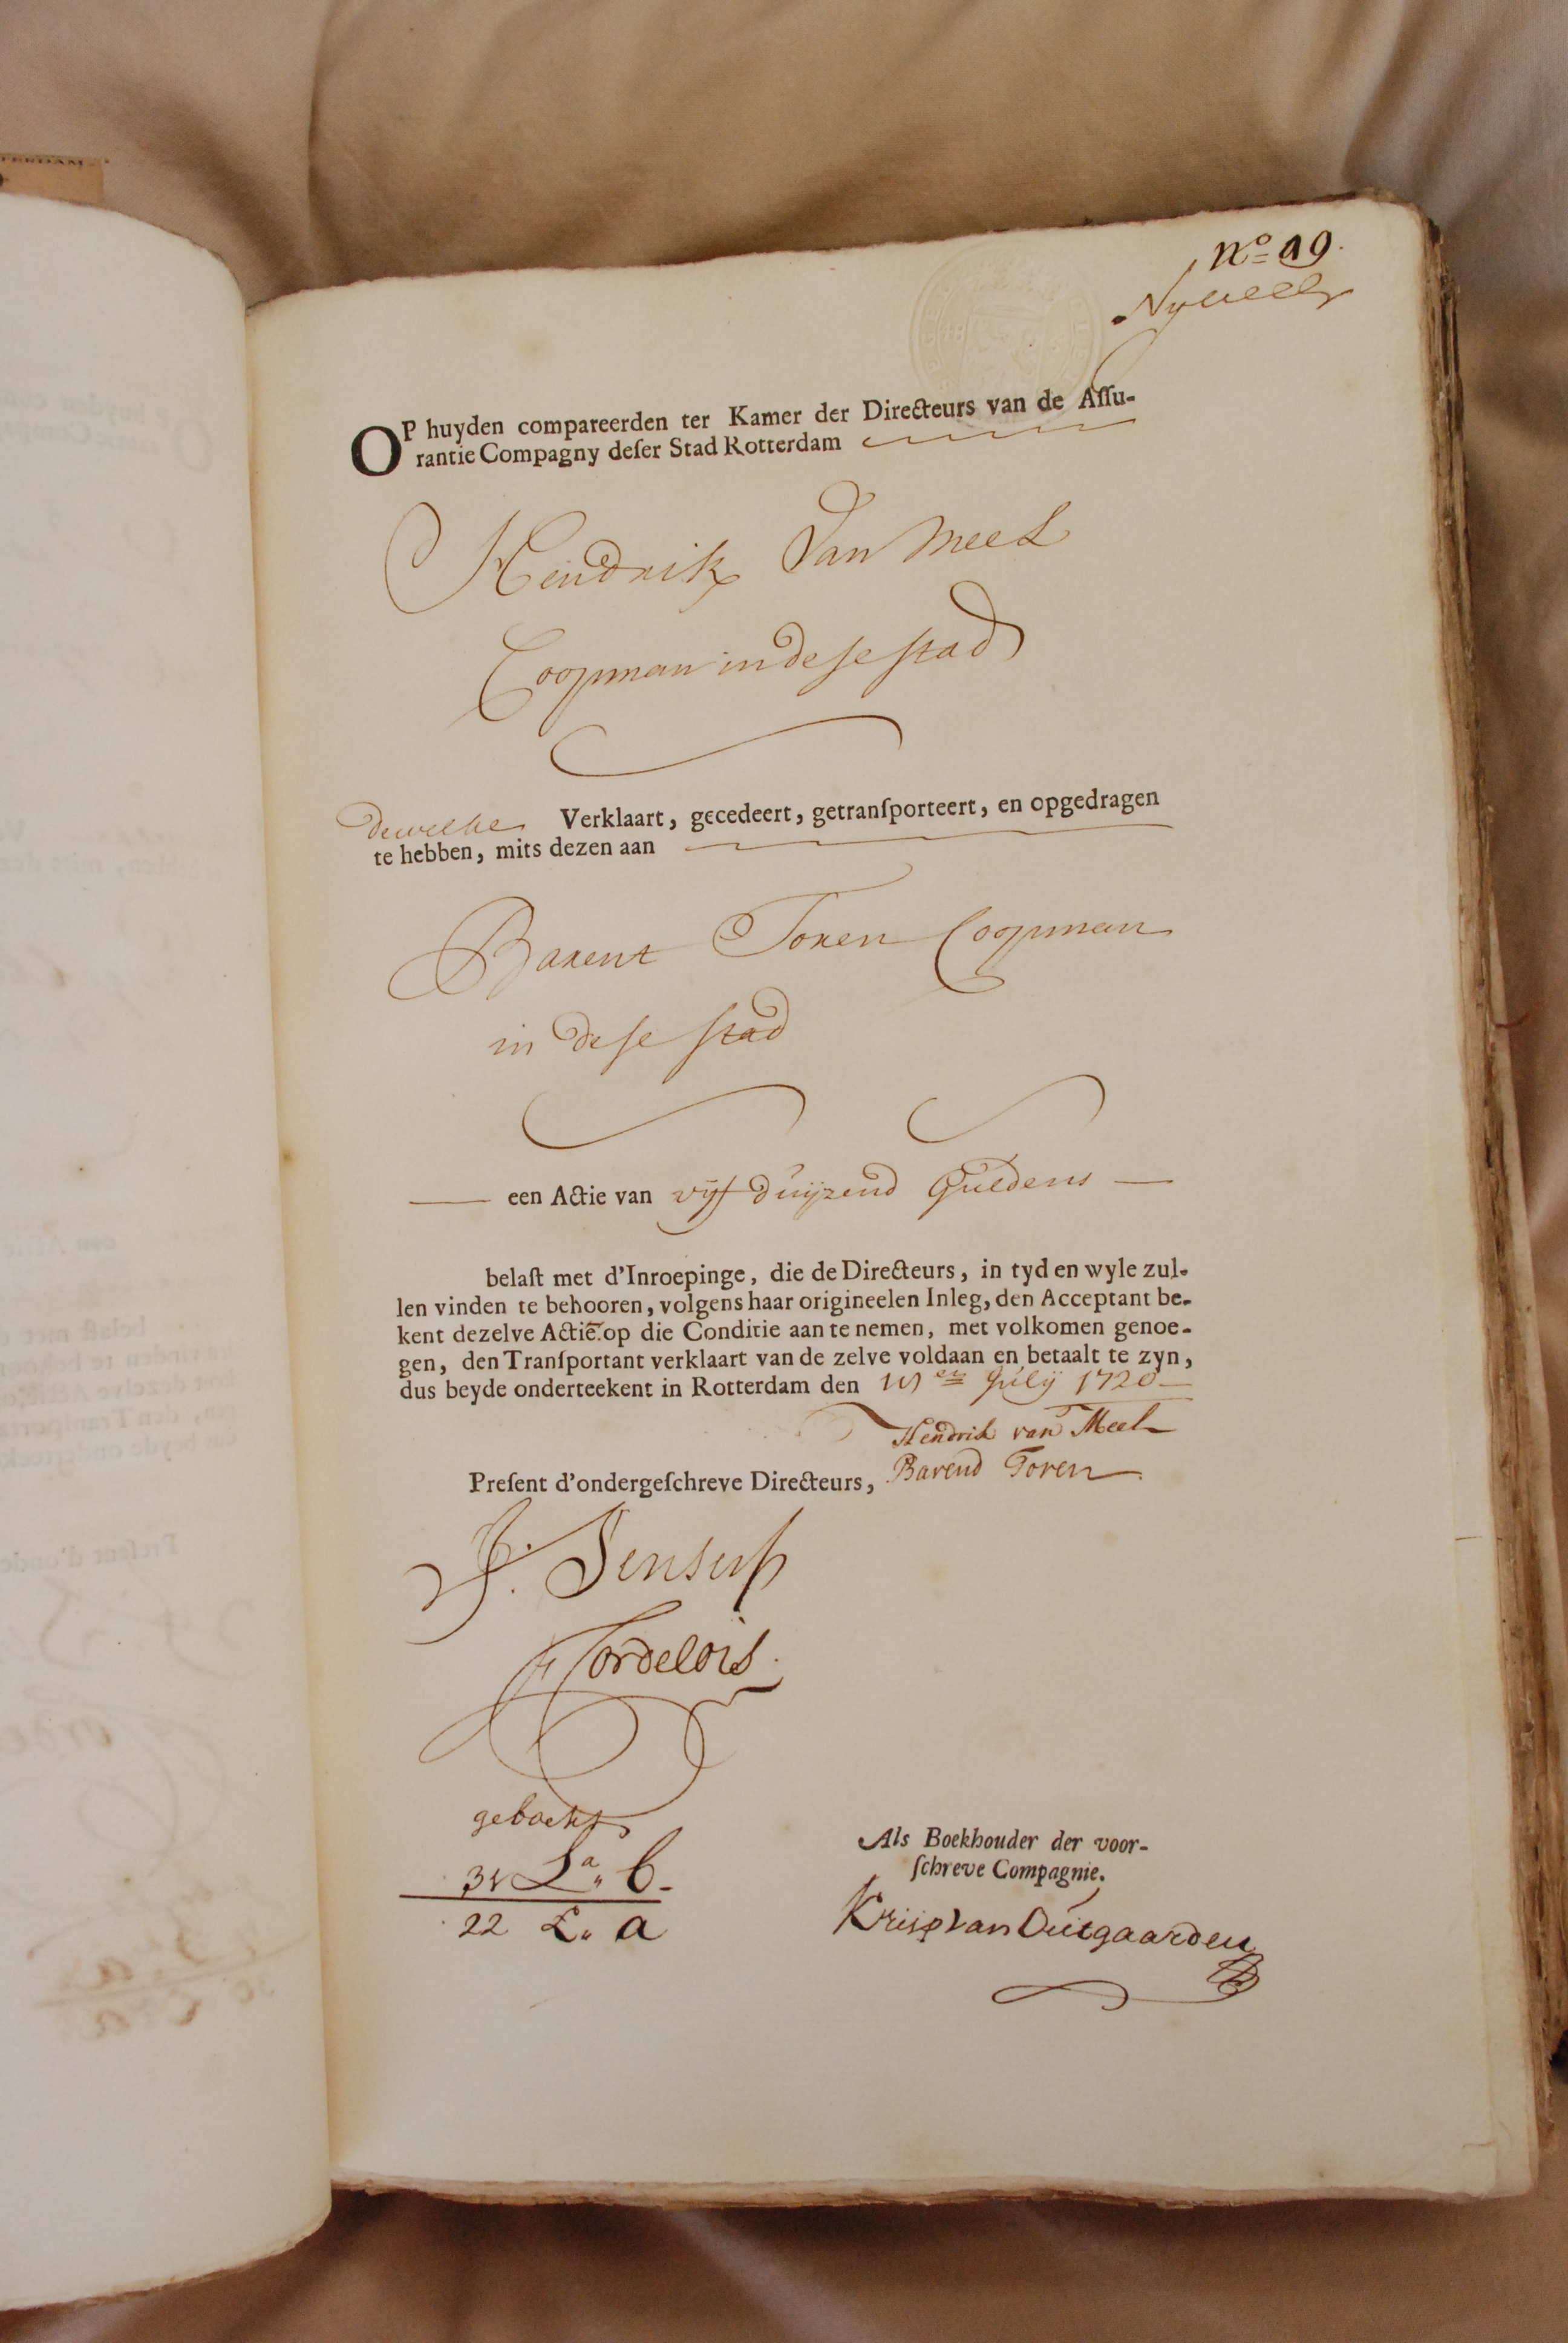 TERDAM
No 19.
OP huyden compareerden ter Kamer der Directeurs van de Aſſu-
rantie Compagny deſer Stad Rotterdam
Hendrik Van Meel
Coopman in deſe ſtad
dewelke Verklaart, gecedeert, getranſporteert, en opgedragen
te hebben, mits dezen aan
Barent Toren Coopman
in deſe ſtad
een Actie van vijf duijzend Guldens
belaſt met d'Inroepinge, die de Directeurs, in tyd en wyle zul-
len vinden te behooren, volgens haar origineelen Inleg, den Acceptant be-
kent dezelve Actie op die Conditie aan te nemen, met volkomen genoe-
gen, den Tranſportant verklaart van de zelve voldaan en betaalt te zyn,
dus beyde onderteekent in Rotterdam den July 1720
Hendrik van Meel
Barend Toren
Preſent d'ondergeſchreve Directeurs,
Cordelois.
geboekt
31 La. b.
22 L. a
Als Boekhouder der voor-
ſchreve Compagnie.
Krisp van Outgaarden